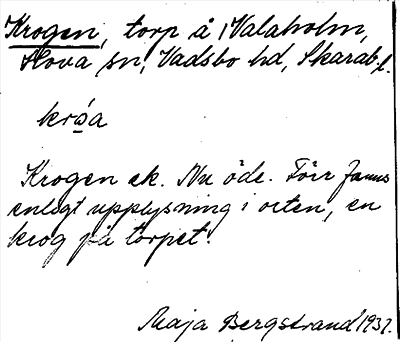 Krogen, torp å Valaholm,
Hova sn, Vadsbo hd, Skarab. l.
krɷa
Krogen ek. Nu öde. Förr fanns
enligt upplysning i orten, en
krog på torpet.
Maja Bergstrand 1937.